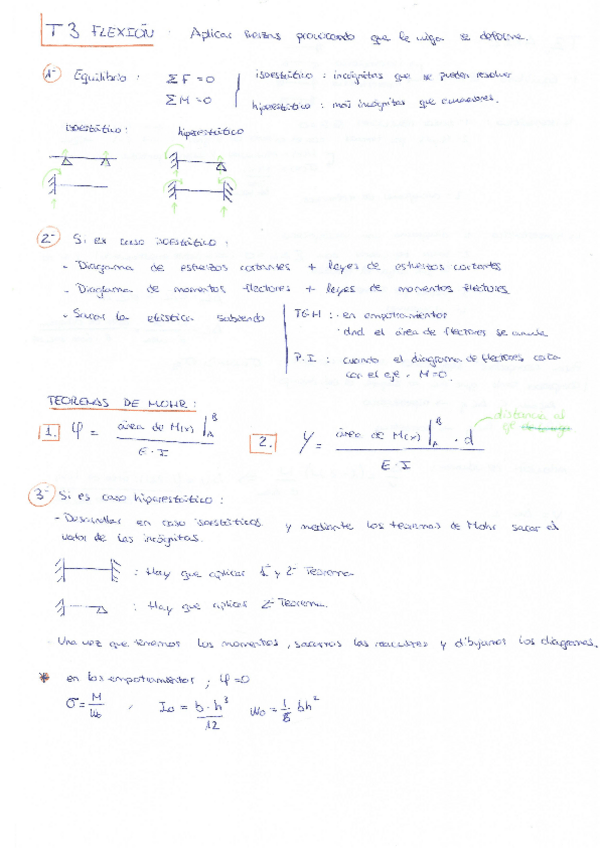 T3 FLEXIÓN : Aplicar fuerzas provocando que la viga se deforme.
1- Equilibrio : ΣF = 0
ΣM = 0
isoestático : incógnitas que se pueden resolver
hiperestático : más incógnitas que ecuaciones.
isoestático : hiperestático
2- Si es caso isoestático :
- Diagrama de esfuerzos cortantes + leyes de esfuerzos cortantes
- Diagrama de momentos flectores + leyes de momentos flectores
- Sacar la elástica sabiendo
TGH : · en empotramientos
· dnd el área de flectores se anula
P.I : cuando el diagrama de flectores corta
con el eje. M=0.
TEOREMAS DE MOHR :
1. φ = área de M(x) |A B / E · I
2. y = área de M(x) |A B · d / E · I
distancia al
eje
3- Si es caso hiperestático :
- Desarrollar en caso isoestáticos y mediante los teoremas de Mohr sacar el
valor de las incógnitas.
: Hay que aplicar 1º y 2º Teorema
: Hay que aplicar 2º Teorema.
- Una vez que tenemos los momentos, sacamos las reacciones y dibujamos los diagramas.
* en los empotramientos ; φ=0
σ = M / W₀ , I₀ = b · h³ / 12 W₀ = 1/6 bh²